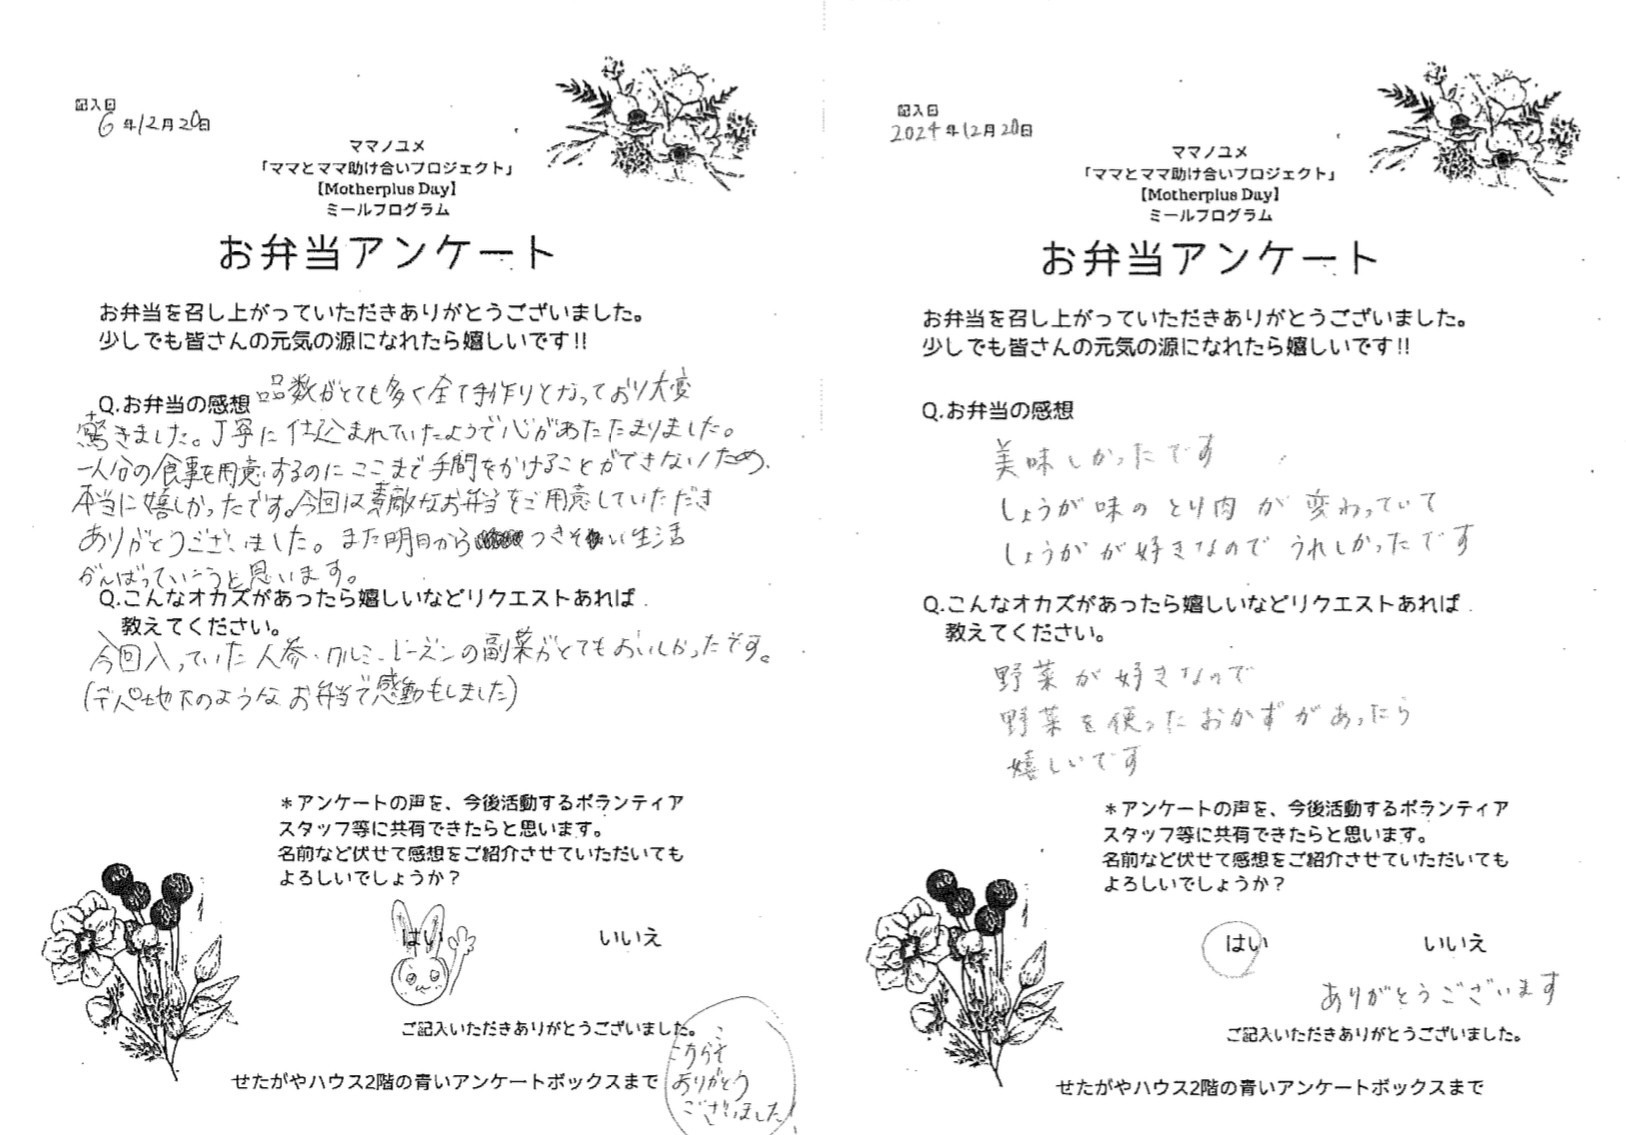 記入日
6年12月20日
ママノユメ
「ママとママ助け合いプロジェクト」
【Motherplus Day】
ミールプログラム
お弁当アンケート
お弁当を召し上がっていただきありがとうございました。
少しでも皆さんの元気の源になれたら嬉しいです!!
Q.お弁当の感想 品数がとても多く全て手作りとなっており大変
驚きました。丁寧に仕込まれていたようで心があたたまりました。
一人分の食事を用意するのにここまで手間をかけることができないため、
本当に嬉しかったです。今回は素敵なお弁当をご用意していただき
ありがとうございました。また明日から つきそい生活
がんばっていこうと思います。
Q.こんなオカズがあったら嬉しいなどリクエストあれば
教えてください。
今回入っていた人参・クルミ・レーズンの副菜がとてもおいしかったです。
(デパ地下のようなお弁当で感動もしました)
*アンケートの声を、今後活動するボランティア
スタッフ等に共有できたらと思います。
名前など伏せて感想をご紹介させていただいても
よろしいでしょうか?
はい いいえ
ご記入いただきありがとうございました。
こちらこそ
ありがとう
ございました!
せたがやハウス2階の青いアンケートボックスまで
記入日
2024年12月20日
ママノユメ
「ママとママ助け合いプロジェクト」
【Motherplus Day】
ミールプログラム
お弁当アンケート
お弁当を召し上がっていただきありがとうございました。
少しでも皆さんの元気の源になれたら嬉しいです!!
Q.お弁当の感想
美味しかったです
しょうが味のとり肉が変わっていて
しょうがが好きなのでうれしかったです
Q.こんなオカズがあったら嬉しいなどリクエストあれば
教えてください。
野菜が好きなので
野菜を使ったおかずがあったら
嬉しいです
*アンケートの声を、今後活動するボランティア
スタッフ等に共有できたらと思います。
名前など伏せて感想をご紹介させていただいても
よろしいでしょうか?
はい いいえ
ありがとうございます
ご記入いただきありがとうございました。
せたがやハウス2階の青いアンケートボックスまで